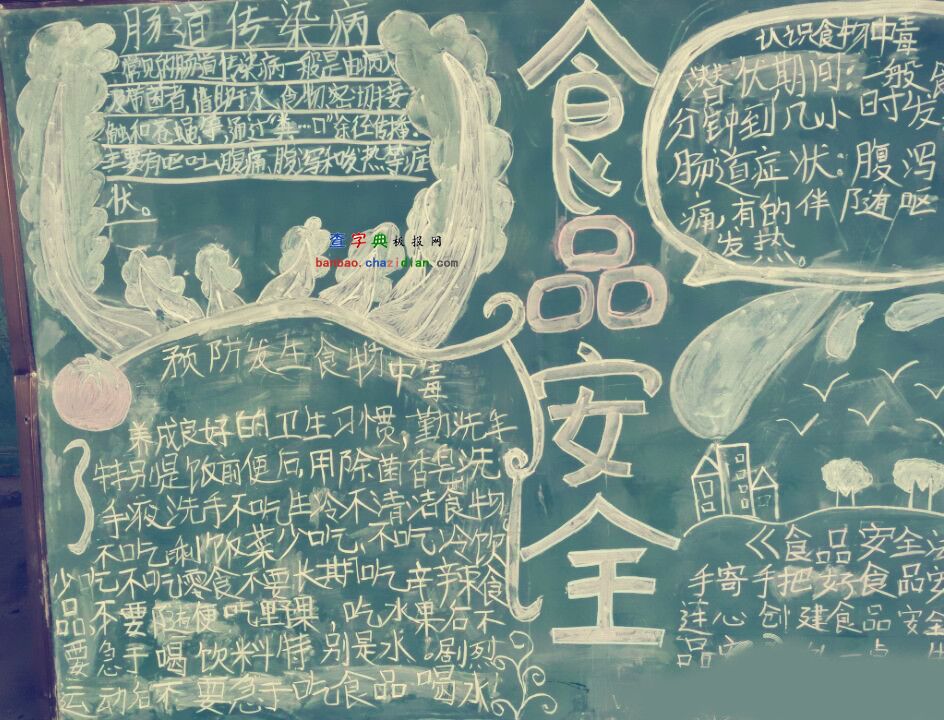 肠道传染病
常见的肠道传染病一般是由病人
及带菌者,借助于水、食物、密切接
触和苍蝇等,通过"粪…口"途径传播。
主要有呕吐、腹痛、腹泻和发热等症
状。
查字典板报网
banbao.chazidian.com
预防发生食物中毒
养成良好的卫生习惯,勤洗手
特别是饭前便后,用除菌香皂洗
手液洗手不吃生冷不清洁食物。
不吃剩饭菜少吃,不吃冷饮
少吃不吃零食不要长期吃辛辣食
品,不要随便吃野果,吃水果后不
要急于喝饮料特别是水。剧烈
运动后不要急于吃食品喝水
食品安全
认识食物中毒
潜伏期间:一般
分钟到几小时发
肠道症状:腹泻
痛,有的伴随呕
发热。
《食品安全
手寄手把好食品安
连心创建食品安全